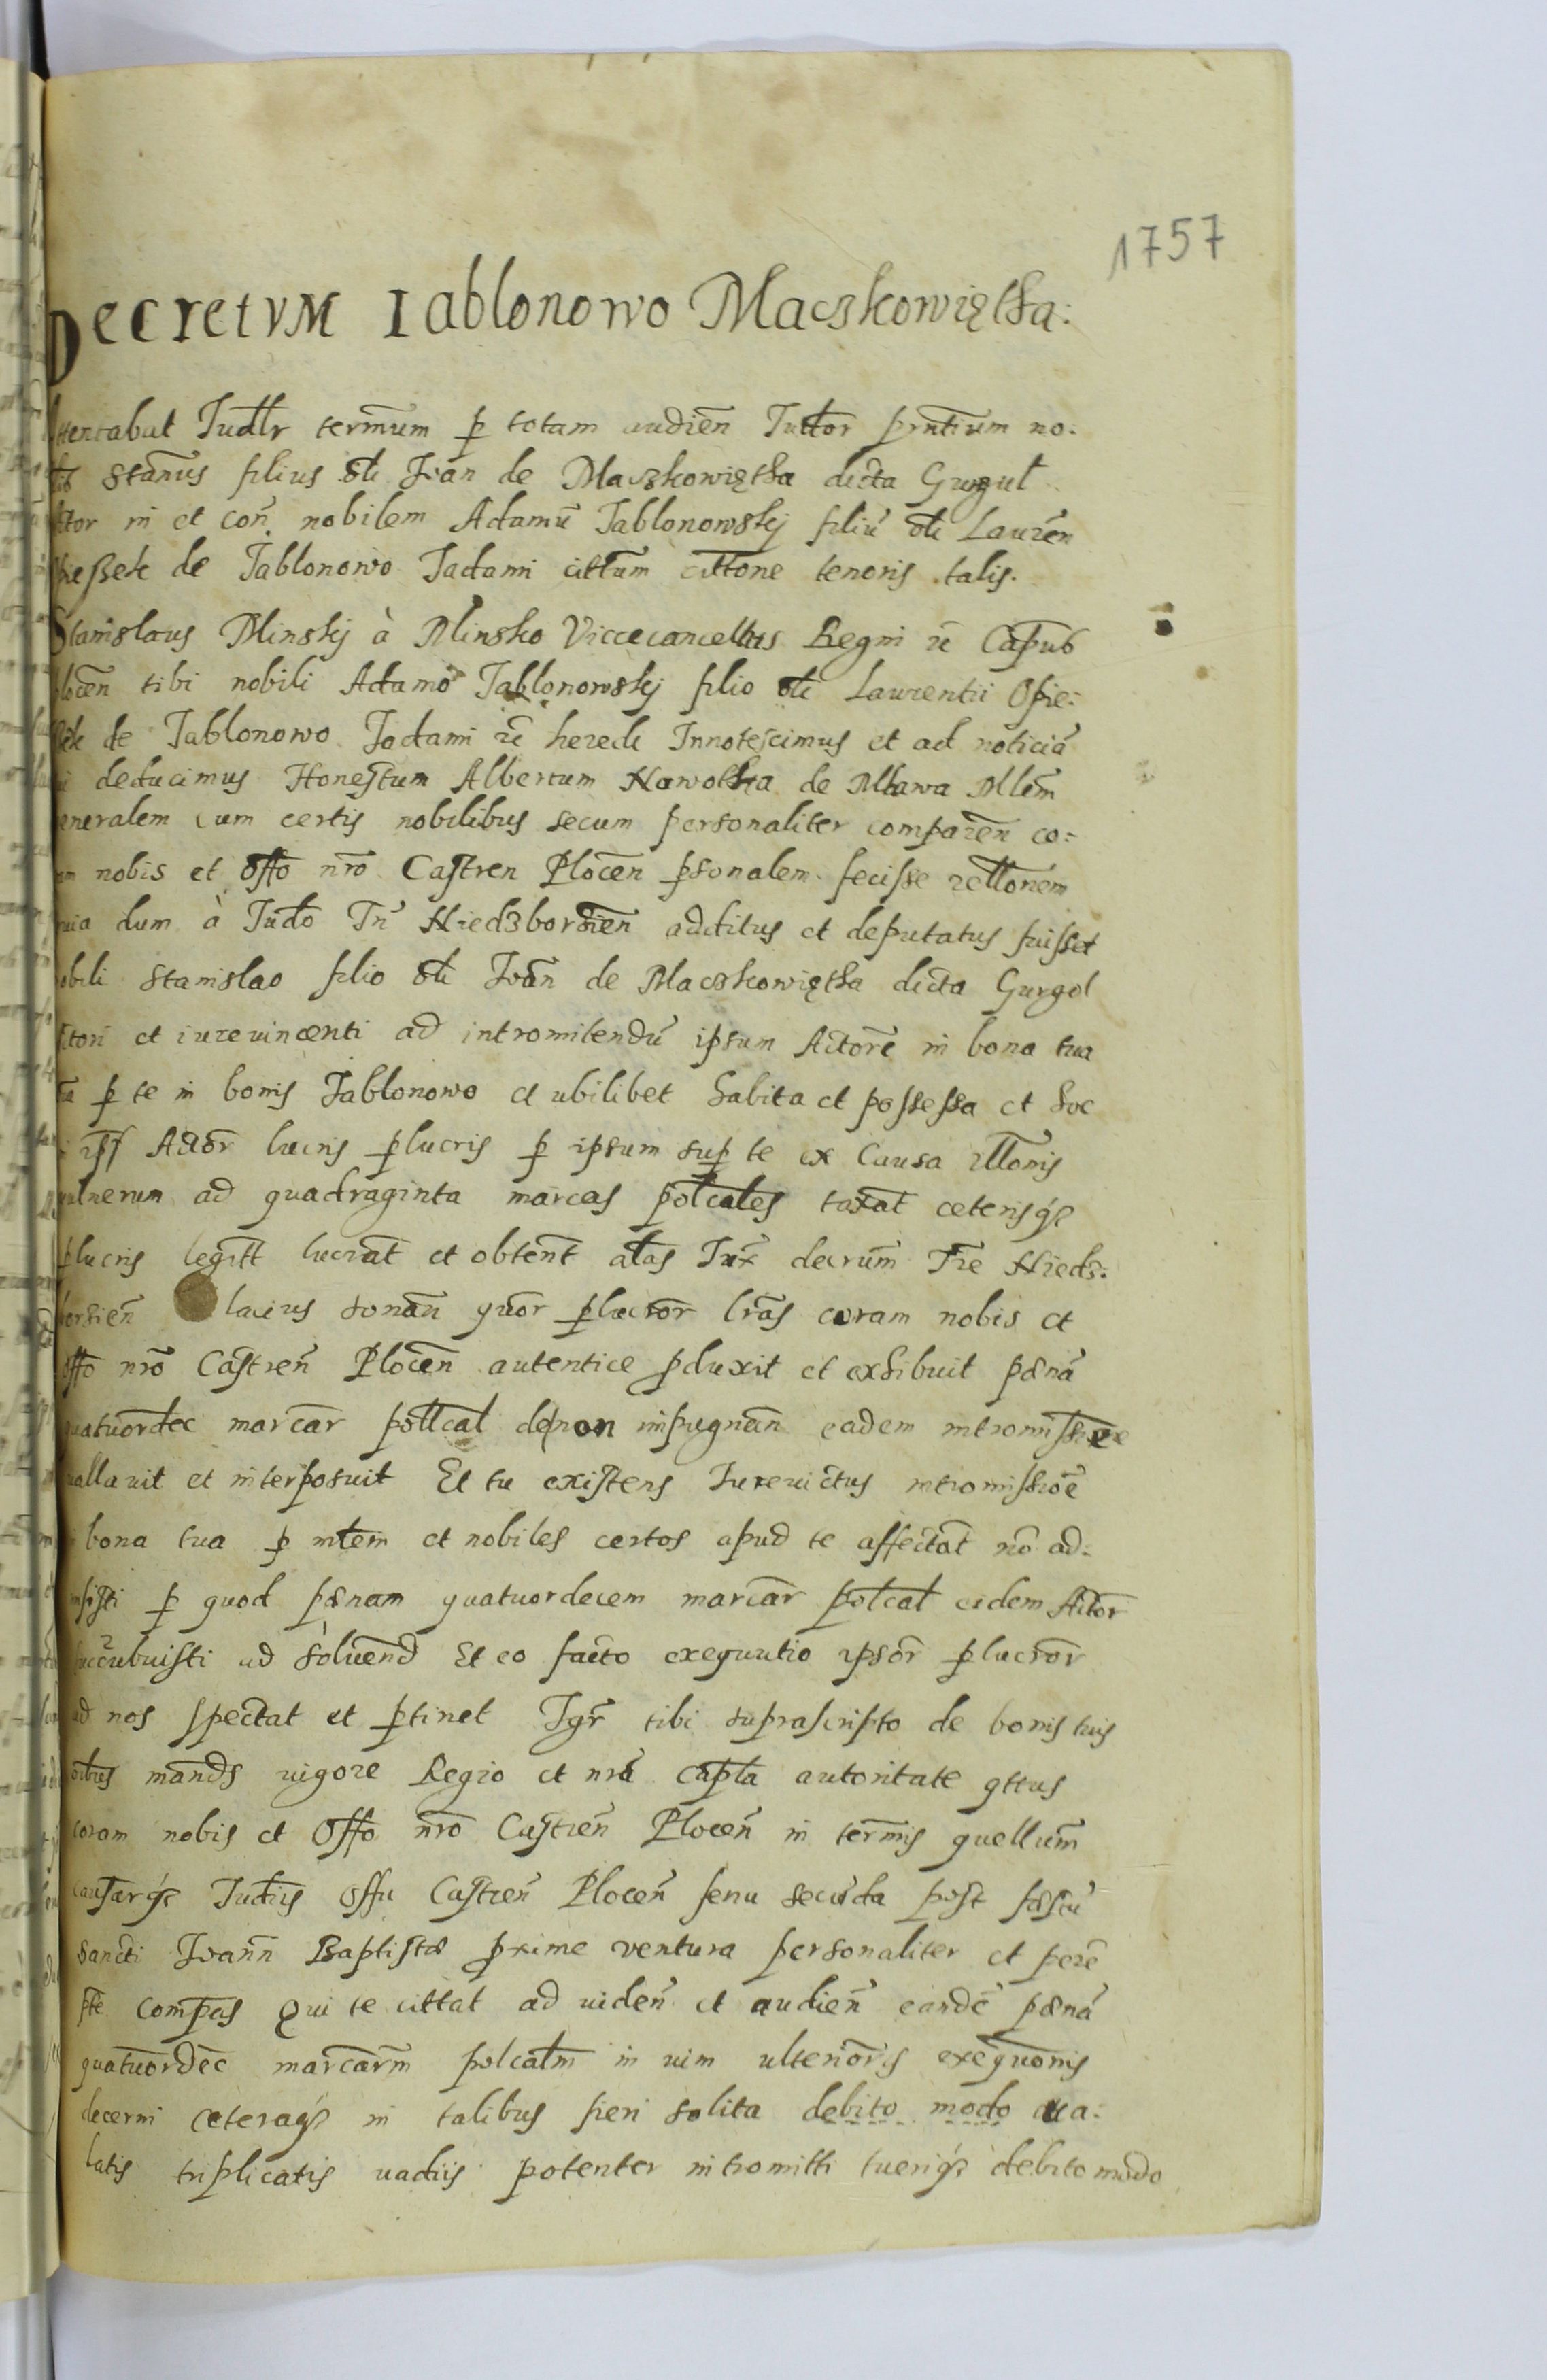 1757
Decretum Iablonowo Maczkowiętha:
ttentabat Iudlr termūm p totam audien Iudior pntium no.
Stanūs filius oli Ioan de Maczkowiętha dicta Gurgul
ctor in et con nobilem Adamū Iablonowskij filiū oli Lauren
pieszek de Iablonowo Iadami cittum cittone tenoris talis.
Stanislaus Minskij à Minsko Vicecancellius Regni re Capus
plocen tibi nobili Adamo Iablonowskij filio oli Laurentii Opie:
de Iablonowo Iadami re heredi Innotescimus et ad noticiā
deducimus Honestum Albertum Nawolka de Mlawa Mlem
eneralem cum certis nobilibus secum personaliter comparen co:
am nobis et Offo nro Castren Plocen psonalem fecisse rellonem
uia dum à Iudo Tri Niedzborsien additus et deputatus fuisset
obili Stanislao filio oli Ioan de Maczkowiętha dicta Gurgol
ctori et iurevincenti ad intromitendū ipsum Actorē in bona tua
p te in bonis Iablonowo et ubilibet habita et possessa et hoc
Actor lucris plucris p ipsum sup te ex Causa illonis
ulnerum ad quadraginta marcas polcales taxat ceterisq3
plucris legitt lucrat et obtent alas Iux decrum Tre Niedz:
borsien lacius sonan quor plucror lras coram nobis et
offo nro Castren Plocen autentice pduxit et exhibuit pænā
quatuordec marcar pollcal de non impugnan eadem intromissione
uallauit et interposuit Et tu existens Iurevictus intromissioē
bona tua p mlem et nobiles certos apud te affectat no ad:
misisti p quod pænam quatuordecem marcar polcal eidem Actor
succubuisti ad soluend Et eo facto exequutio ipsor plucror
ad nos spectat et ptinet Igr tibi suprascripto de bonis tuis
oibus mands uigore Regio et nra Capla autoritate qttus
coram nobis et Offo nro Castren Plocen in termis quellum
causarq3 Iudiis Offu Castren Plocen feria secūda post festū
sancti Ioann Baptistæ pxime ventura personaliter et pere
pte compas Qui te cittat ad uiden et audien eandē pænā
quatuordec marcarm polcalm in uim ulterioris exequonis
decerni ceteraq3 in talibus fieri solita debito modo ua:
latis triplicatis uadiis potenter intromitti tueriq3 debito modo